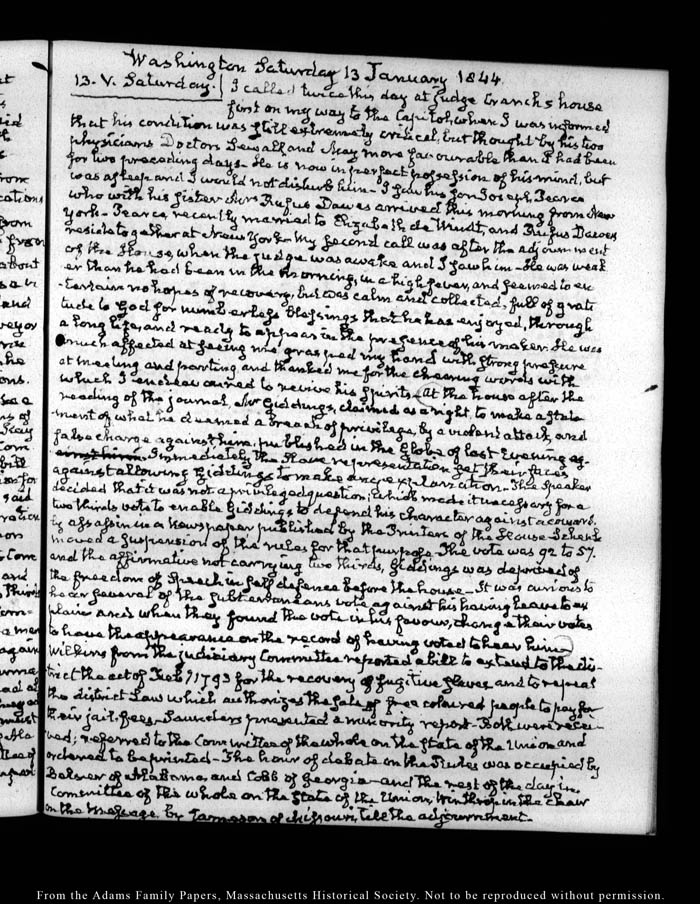 Washington Saturday 13 January 1844.
13. V. Saturday. I called twice this day at Judge Cranch's house
first on my way to the Capitol, when I was informed
that his condition was still extremely critical, but thought by his two
physicians Doctors Sewall and May more favourable than it had been
for two preceding days. He is now in perfect possession of his mind, but
was asleep and I would not disturb him. I saw his son Joseph, Pearce
who with his sister Mrs Rufus Dawes arrived this morning from New
York. Pearce recently married to Elizabeth de Windt, and Rufus Dawes
reside together at New York. My second call was after the adjournment
of the House, when the judge was awake and I saw him. He was weak
er than he had been in the morning, in a high fever, and seemed to en
tertain no hopes of recovery, but was calm and collected, full of grati
tude to God for numberless blessings that he has enjoyed, through
a long life, and ready to appear in the presence of his maker. He was
much affected at seeing me, grasped my hand with strong pressure
at meeting and parting, and thanked me for the cheering words with
which I endeavoured to revive his spirits. At the house after the
reading of the journal, Mr Giddings, claimed as a right, to make a state
ment of what he deemed a breach of privilege, by a violent attack, and
false charge against him, published in the Globe of last evening ag-
ainst him. Immediately the slave representation set their faces
against allowing Giddings to make any explanation. The Speaker
decided that it was not a privileged question; which made it necessary for a
two thirds vote to enable Giddings to defend his character against a coward-
ly assassin in a Newspaper published by the Printers of the House. Schenck
moved a suspension of the rules for that purpose. The vote was 92 to 57.
and the affirmative not carrying two thirds, Giddings was deprived of
the freedom of Speech in self defence before the house. It was curious to
hear several of the subterraneans vote against his having leave to ex
plain and when they found the vote in his favour, change their votes
to have the appearance on the record of having voted to hear him
Wilkins from the judiciary Committee reported a bill to extend to the dis-
trict the act of Feby 1793 for the recovery of fugitive slaves and to repeal
the district Law which authorizes the sale of free coloured people to pay for
their jail-fees. Saunders presented a minority report. Both were recei-
ved; referred to the Committee of the whole on the state of the Union and
ordered to be printed. The hour of debate on the Rules was occupied by
Belser of Alabama, and Cobb of Georgia and the rest of the day in
Committee of the whole on the State of the Union, Winthrop in the chair
on the message by Jameson of Missouri, till the adjournment.
From the Adams Family Papers, Massachusetts Historical Society. Not to be reproduced without permission.